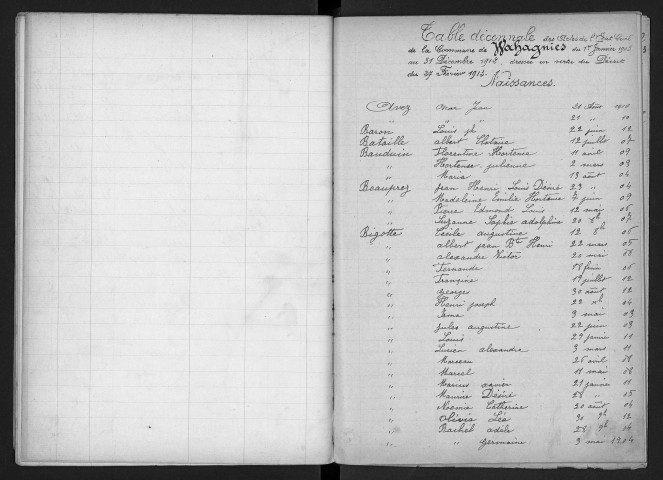 Table décennale des Actes de l'Etat Civil
de la Commune de Wahagnies du 1er Janvier 1903
au 31 Décembre 1912, dressée en vertu du Décret
du 27 Février 1913.
Naissances.
Avez Jean 21 Août 1910
" 21 " 10
Baron Louis 22 juin 12
Bataille albert Clotaire 12 juillet 07
Bauduin Florentine Hortense 11 avril 09
" Hortense julienne 2 mars 09
" Maria 13 août 04
Beauprez Jean Henri Louis Désiré 23 " 04
" Madeleine Emilie Hortense 7 juin 09
" Pierre Edmond Louis 12 mai 06
" Suzanne Sophie adolphine 20 8b 07
Bigotte Cécile augustine 12 8b 06
" albert jean Bte Henri 22 mars 05
" alexandre Victor 20 mai 08
" Fernande 18 fevr 06
" Françine 19 juillet 12
" george 30 août 12
" Henri joseph 22 04
" Irma 3 mai 03
" jules augustine 22 juin 03
" Louis 29 janvier 11
" Lucien alexandre 3 mars 11
" 26 avril 08
" Marcel 11 mai 08
" Marius xavier 21 janvier 11
" Maurice Désiré 28 " 05
" Noémie Catherine 20 août 04
" Olivia Léa 30 9b 12
" Rachel adèle 28 9b 04
" " germaine 3 mai 1904